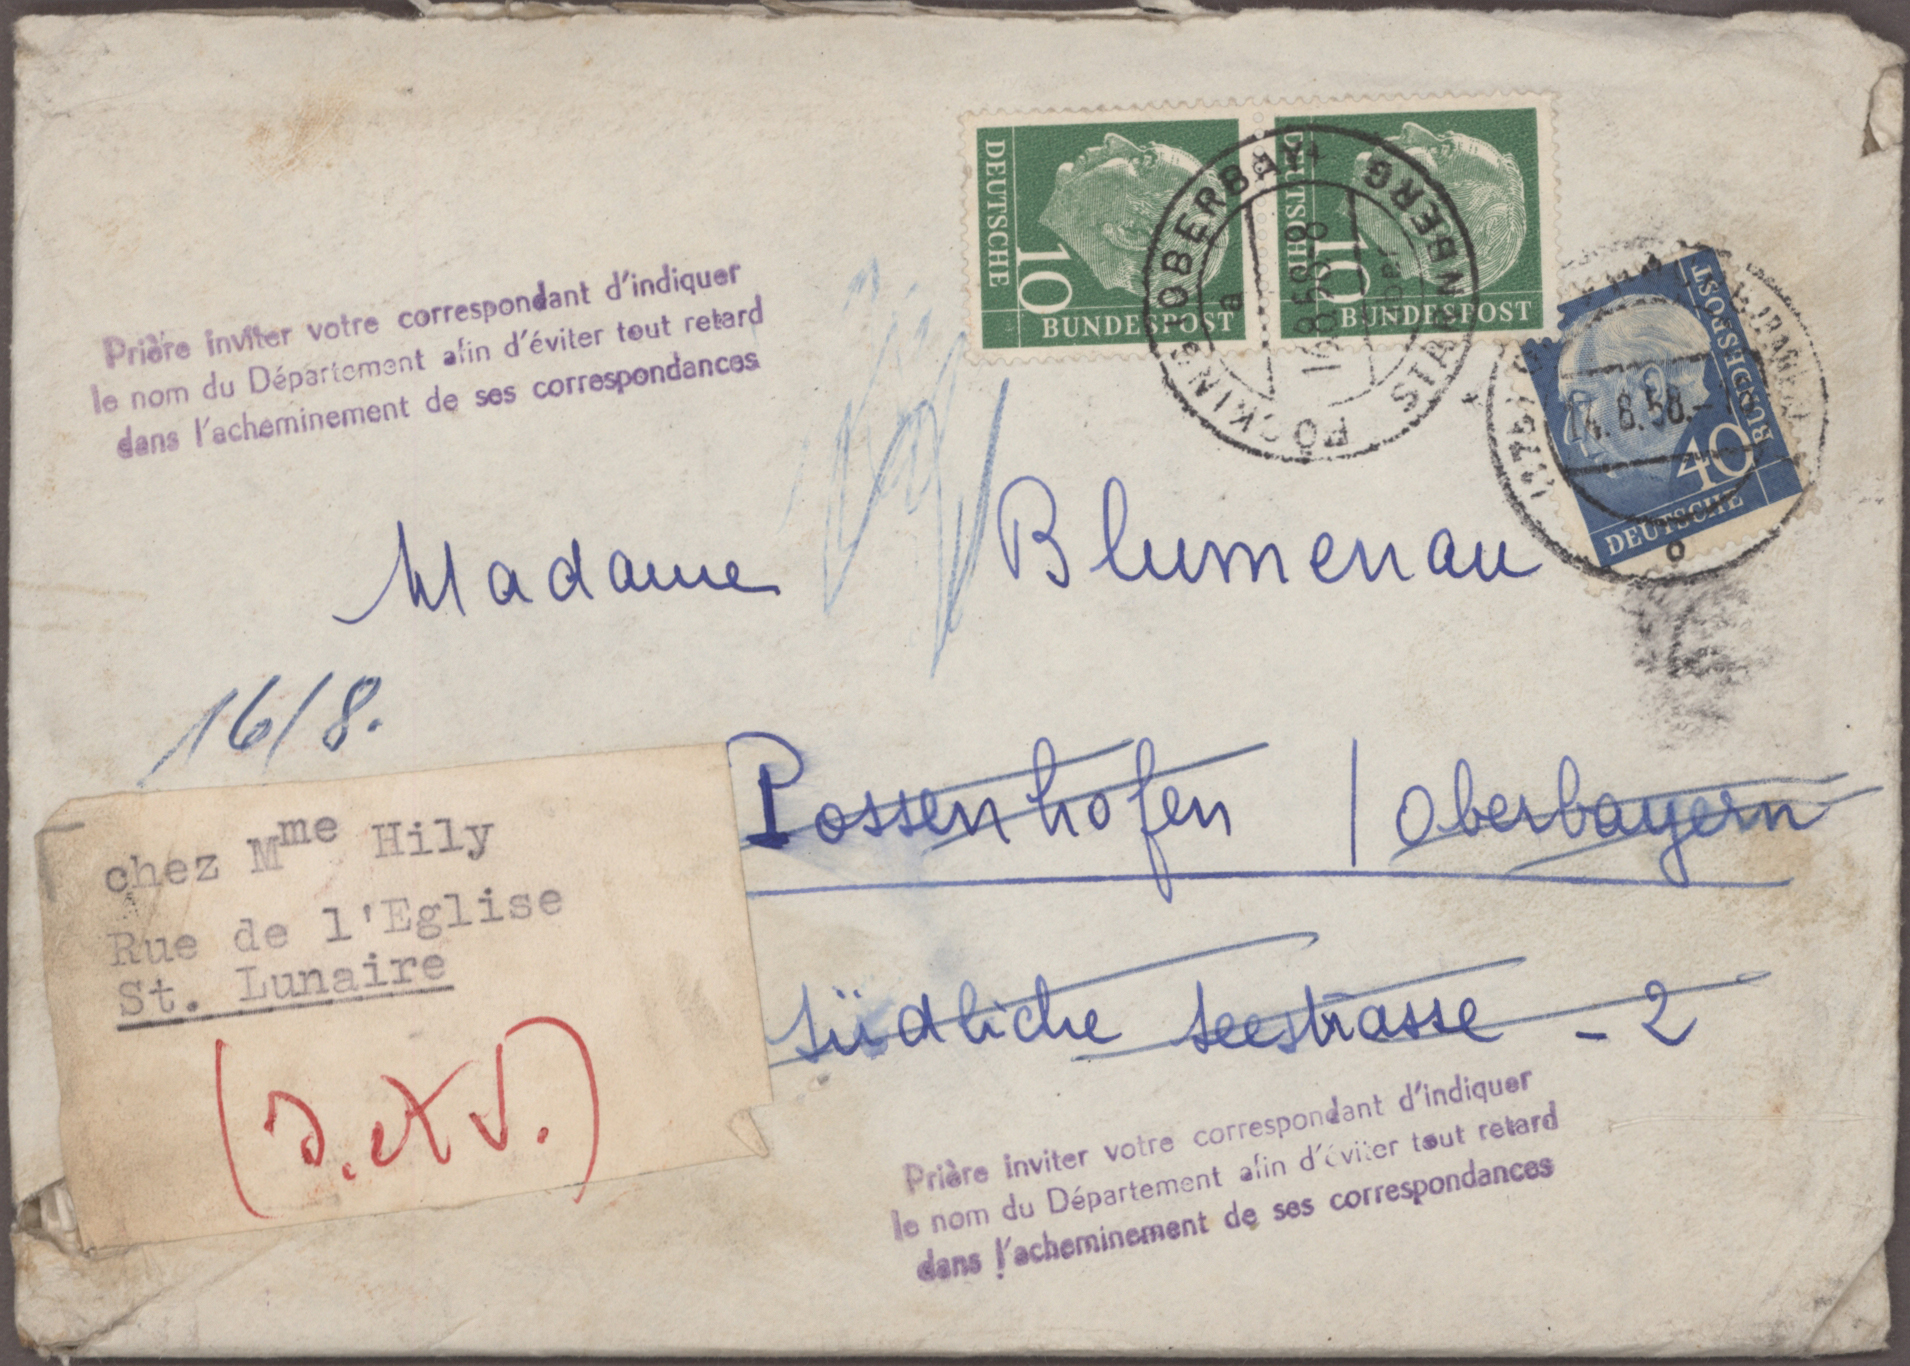 DEUTSCHE
10
BUNDESPOST
DEUTSCHE
10
BUNDESPOST
PÖCKING OBERBAY
STARNBERG
a
16.8.58-8
über
DEUTSCHE
40
BUNDESPOST
14.8.58.-
Prière inviter votre correspondant d'indiquer
le nom du Département afin d'éviter tout retard
dans l'acheminement de ses correspondances
Madame Blumenau
16/8.
Possenhofen / Oberbayern
südliche Seestrasse - 2
chez Mme Hily
Rue de l'Eglise
St. Lunaire
(I. et V.)
Prière inviter votre correspondant d'indiquer
le nom du Département afin d'éviter tout retard
dans l'acheminement de ses correspondances